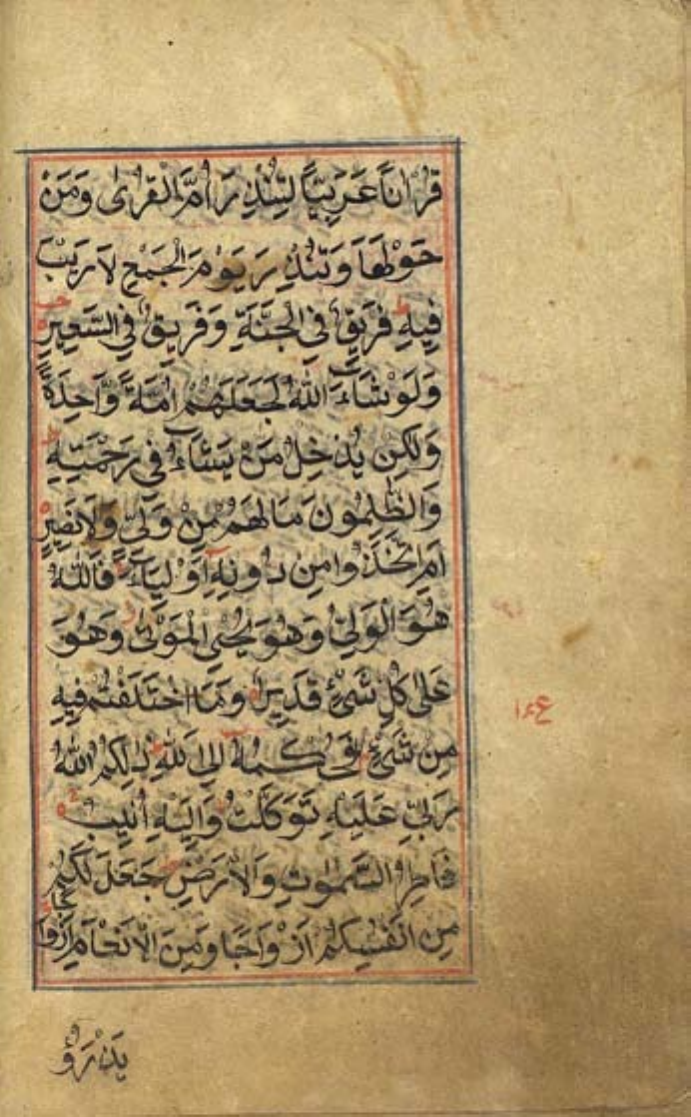 قُرْاٰنًا عَرَبِيًّا لِّتُنْذِرَ اُمَّ الْقُرٰى وَمَنْ
حَوْلَهَا وَتُنْذِرَ يَوْمَ الْجَمْعِ لَا رَيْبَ
فِيْهِ فَرِيْقٌ فِى الْجَنَّةِ وَفَرِيْقٌ فِى السَّعِيْرِ
وَلَوْ شَآءَ اللّٰهُ لَجَعَلَهُمْ اُمَّةً وَّاحِدَةً
وَلٰكِنْ يُّدْخِلُ مَنْ يَّشَآءُ فِى رَحْمَتِهٖ
وَالظّٰلِمُوْنَ مَا لَهُمْ مِّنْ وَّلِىٍّ وَّلَا نَصِيْرٍ
اَمِ اتَّخَذُوْا مِنْ دُوْنِهٖ اَوْلِيَآءَ فَاللّٰهُ
هُوَ الْوَلِىُّ وَهُوَ يُحْىِ الْمَوْتٰى وَهُوَ
عَلٰى كُلِّ شَىْءٍ قَدِيْرٌ وَمَا اخْتَلَفْتُمْ فِيْهِ
مِنْ شَىْءٍ فَحُكْمُهٗ اِلَى اللّٰهِ ذٰلِكُمُ اللّٰهُ
رَبِّىْ عَلَيْهِ تَوَكَّلْتُ وَاِلَيْهِ اُنِيْبُ
فَاطِرُ السَّمٰوٰتِ وَالْاَرْضِ جَعَلَ لَكُمْ
مِّنْ اَنْفُسِكُمْ اَزْوَاجًا وَّمِنَ الْاَنْعَامِ اَزْوَاجًا
يَذْرَؤُ